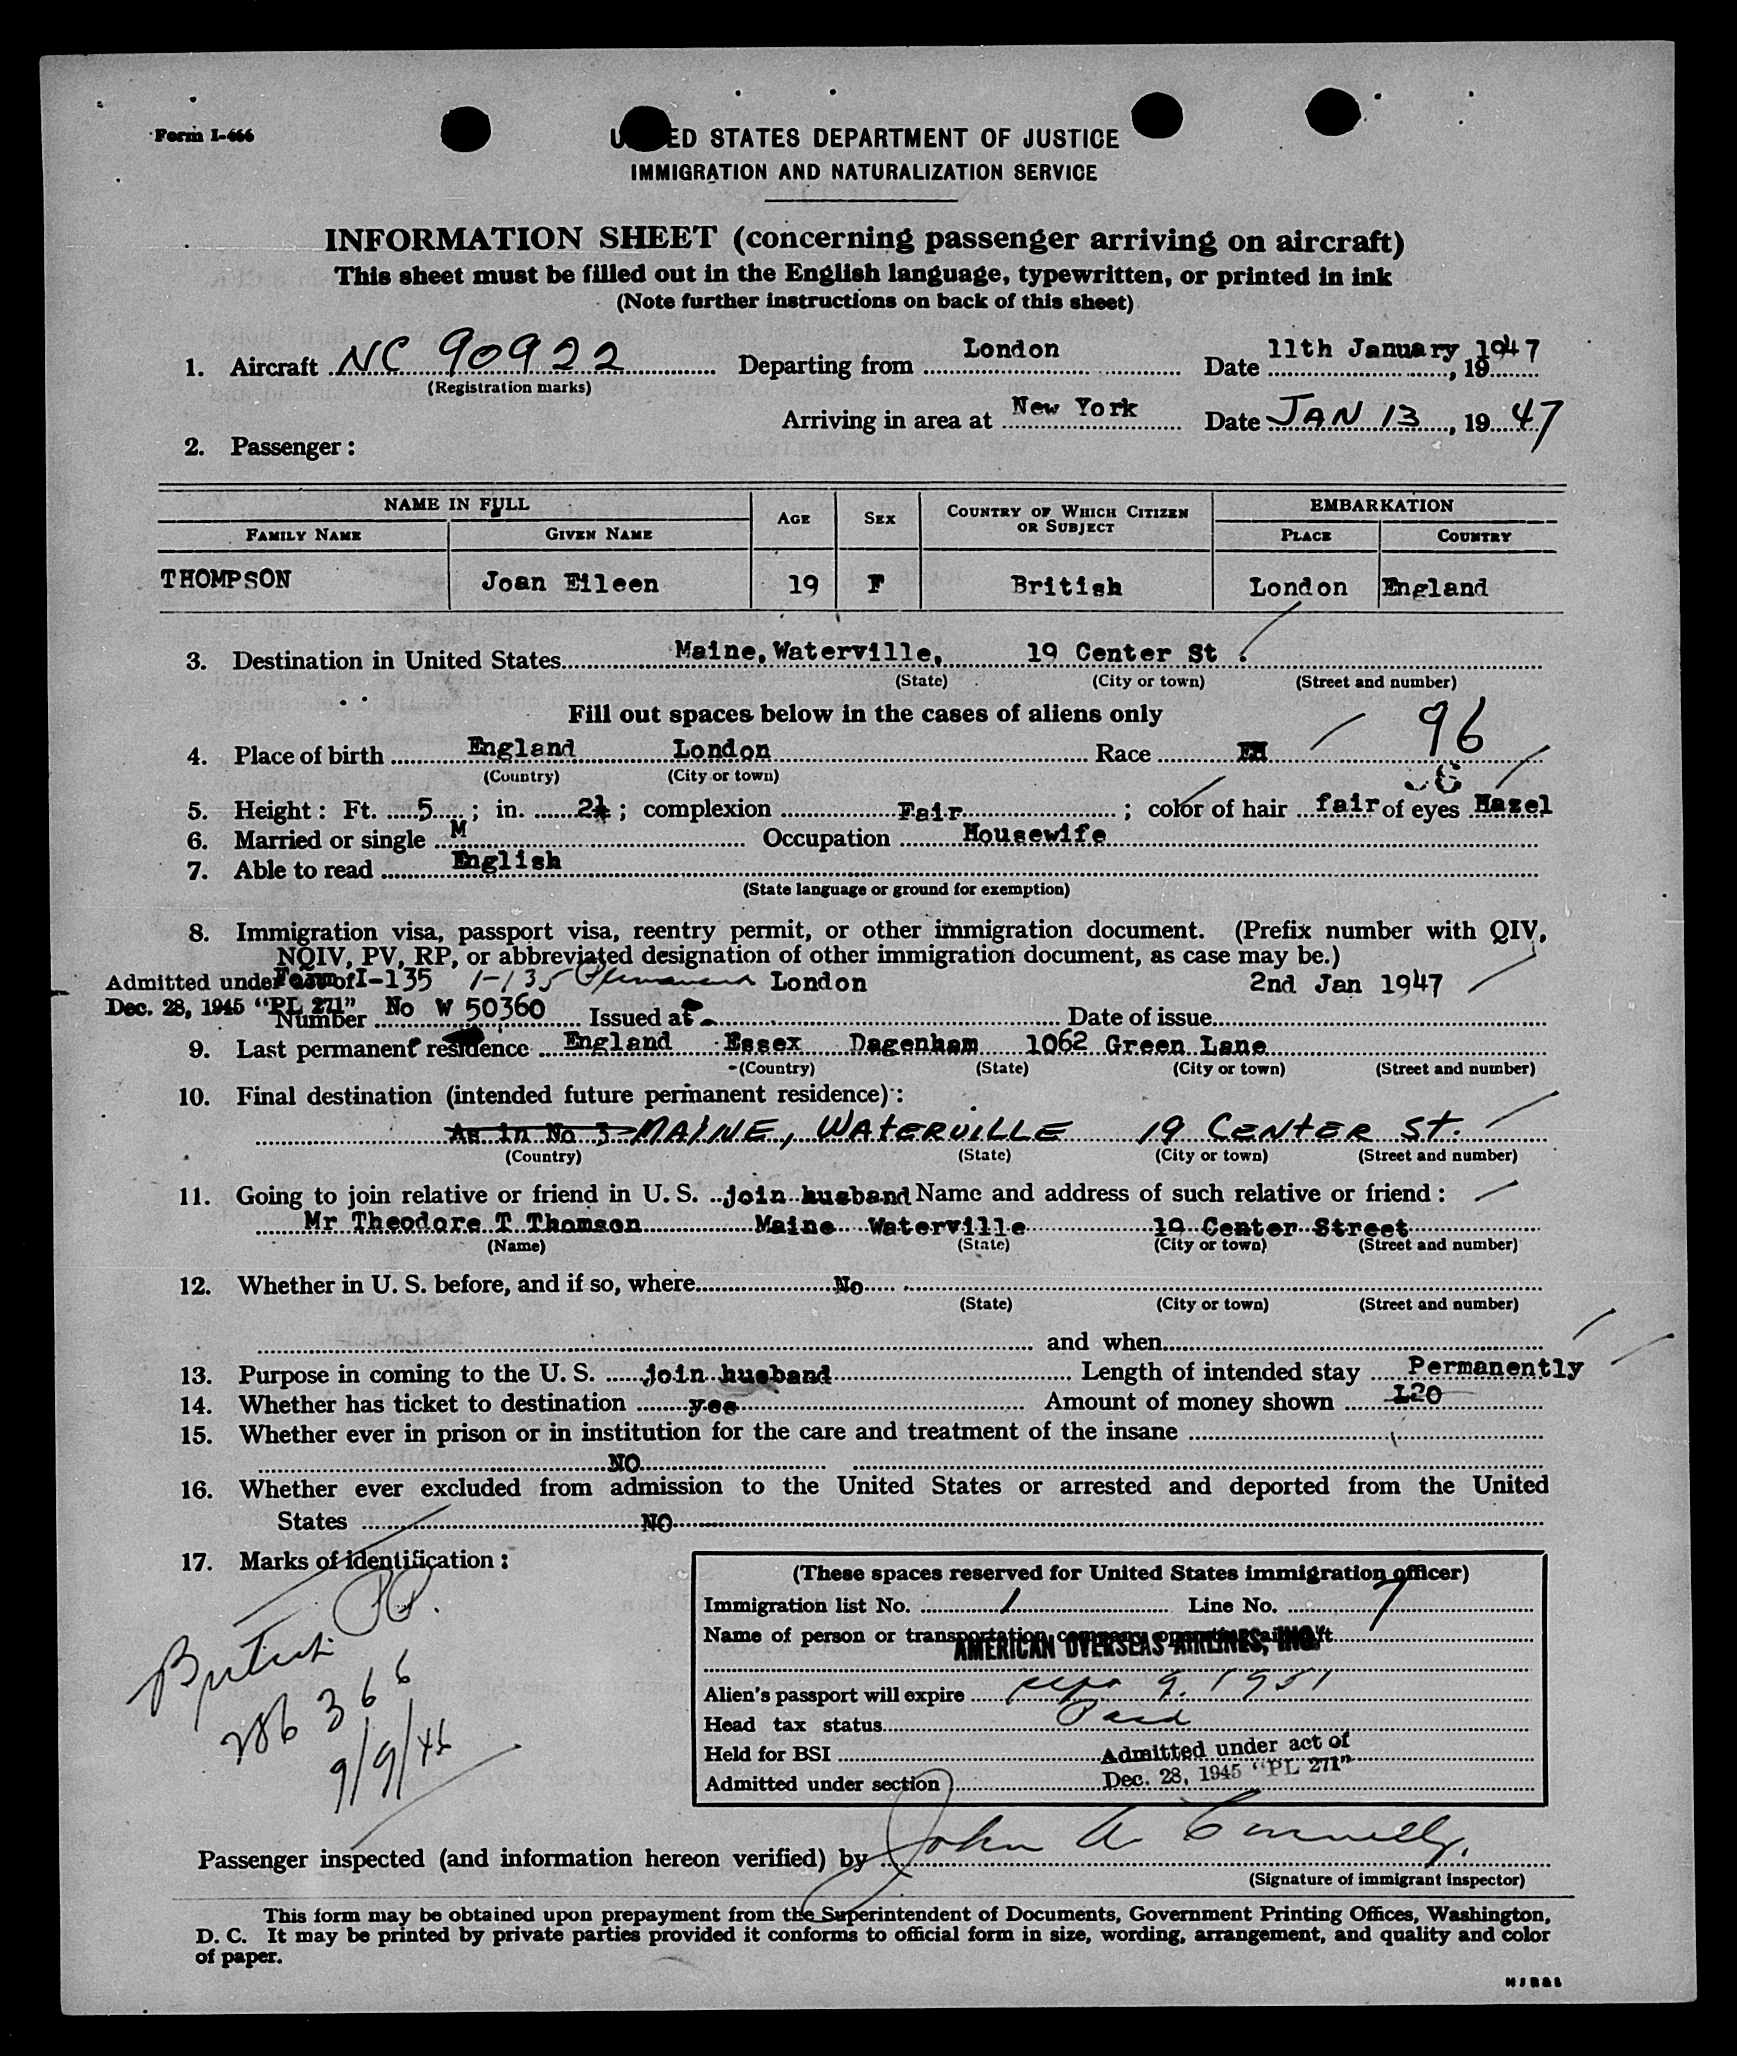 Form I-466
UNITED STATES DEPARTMENT OF JUSTICE
IMMIGRATION AND NATURALIZATION SERVICE
INFORMATION SHEET (concerning passenger arriving on aircraft)
This sheet must be filled out in the English language, typewritten, or printed in ink
(Note further instructions on back of this sheet)
1. Aircraft NC 90922 Departing from London Date 11th January, 1947
(Registration marks)
Arriving in area at New York Date JAN 13, 1947
2. Passenger:
NAME IN FULL AGE SEX COUNTRY OF WHICH CITIZEN OR SUBJECT EMBARKATION
FAMILY NAME GIVEN NAME PLACE COUNTRY
THOMPSON Joan Eileen 19 F British London England
3. Destination in United States Maine, Waterville, 19 Center St.
(State) (City or town) (Street and number)
Fill out spaces below in the cases of aliens only
96
4. Place of birth England London Race
(Country) (City or town)
5. Height: Ft. 5; in. 2½; complexion Fair; color of hair fair of eyes Hazel
6. Married or single M Occupation Housewife
7. Able to read English
(State language or ground for exemption)
8. Immigration visa, passport visa, reentry permit, or other immigration document. (Prefix number with QIV,
NQIV, PV, RP, or abbreviated designation of other immigration document, as case may be.)
Admitted under act of Form I-135 I-135 Permanent London 2nd Jan 1947
Dec. 28, 1945 "PL 271"
Number No W 50360 Issued at Date of issue
9. Last permanent residence England Essex Dagenham 1062 Green Lane
(Country) (State) (City or town) (Street and number)
10. Final destination (intended future permanent residence):
As in No 3 MAINE, WATERVILLE 19 CENTER ST.
(Country) (State) (City or town) (Street and number)
11. Going to join relative or friend in U. S. join husband Name and address of such relative or friend:
Mr Theodore T Thomson Maine Waterville 19 Center Street
(Name) (State) (City or town) (Street and number)
12. Whether in U. S. before, and if so, where No
(State) (City or town) (Street and number)
and when
13. Purpose in coming to the U. S. join husband Length of intended stay Permanently
14. Whether has ticket to destination yes Amount of money shown L20
15. Whether ever in prison or in institution for the care and treatment of the insane
NO
16. Whether ever excluded from admission to the United States or arrested and deported from the United
States NO
17. Marks of identification:
British PP.
286366
9/9/46
(These spaces reserved for United States immigration officer)
Immigration list No. 1 Line No. 7
Name of person or transportation company operating aircraft
AMERICAN OVERSEAS AIRLINES, INC.
Alien's passport will expire Sep 9, 1951
Head tax status Paid
Held for BSI
Admitted under section
Admitted under act of
Dec. 28, 1945 "PL 271"
Passenger inspected (and information hereon verified) by John A Connelly.
(Signature of immigrant inspector)
This form may be obtained upon prepayment from the Superintendent of Documents, Government Printing Offices, Washington,
D. C. It may be printed by private parties provided it conforms to official form in size, wording, arrangement, and quality and color
of paper.